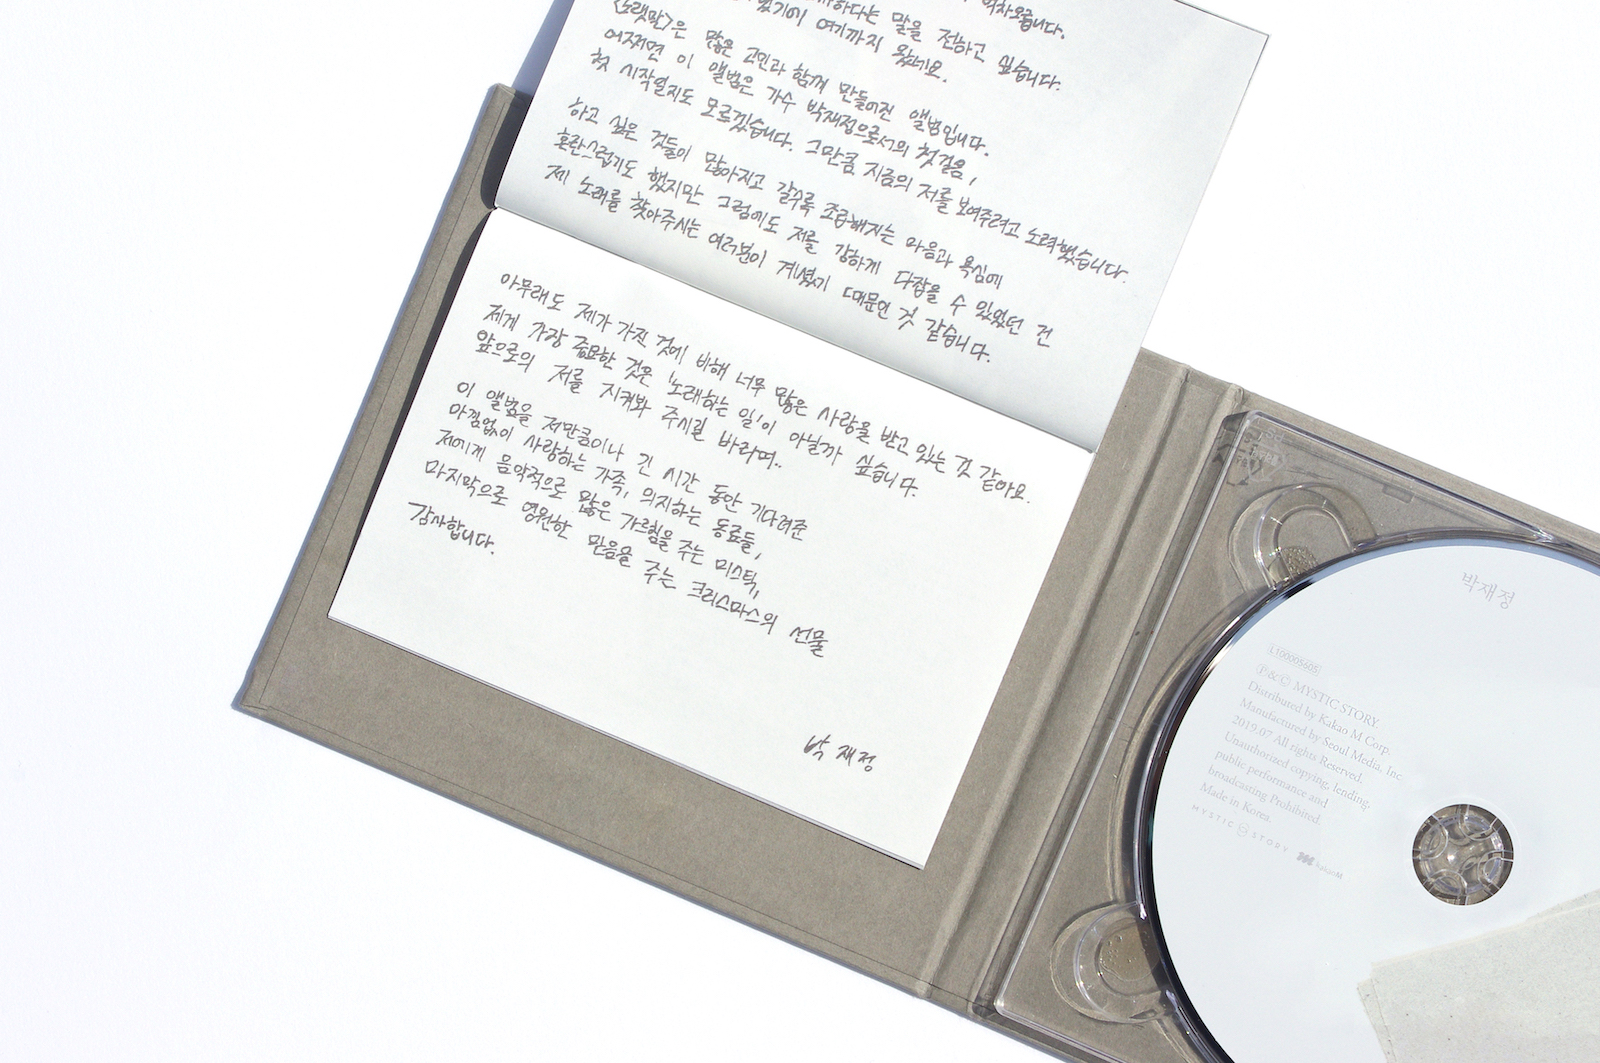 벅차오릅니다.
말을 전하고 싶습니다.
여기까지 왔네요.
<노랫말>은 많은 고민과 함께 만들어진 앨범입니다.
어쩌면 이 앨범은 가수 박재정으로서의 첫걸음,
첫 시작일지도 모르겠습니다. 그만큼 지금의 저를 보여주려고 노력했습니다.
하고 싶은 것들이 많아지고 갈수록 조급해지는 마음과 욕심에
혼란스럽기도 했지만 그럼에도 저를 강하게 다잡을 수 있었던 건
제 노래를 찾아주시는 여러분이 계셨기 때문인 것 같습니다.
아무래도 제가 가진 것에 비해 너무 많은 사랑을 받고 있는 것 같아요.
제게 가장 중요한 것은 '노래하는 일'이 아닐까 싶습니다.
앞으로의 저를 지켜봐 주시길 바라며..
이 앨범을 저만큼이나 긴 시간 동안 기다려준
아낌없이 사랑하는 가족, 의지하는 동료들,
저에게 음악적으로 많은 가르침을 주는 미스틱,
마지막으로 영원한 믿음을 주는 크리스마스의 선물
감사합니다.
박재정
박재정
L100005605
℗ & © MYSTIC STORY.
Distributed by Kakao M Corp.
Manufactured by Seoul Media, Inc
2019.07 All rights Reserved.
Unauthorized copying, lending,
public performance and
broadcasting Prohibited.
Made in Korea.
MYSTIC STORY kakaoM